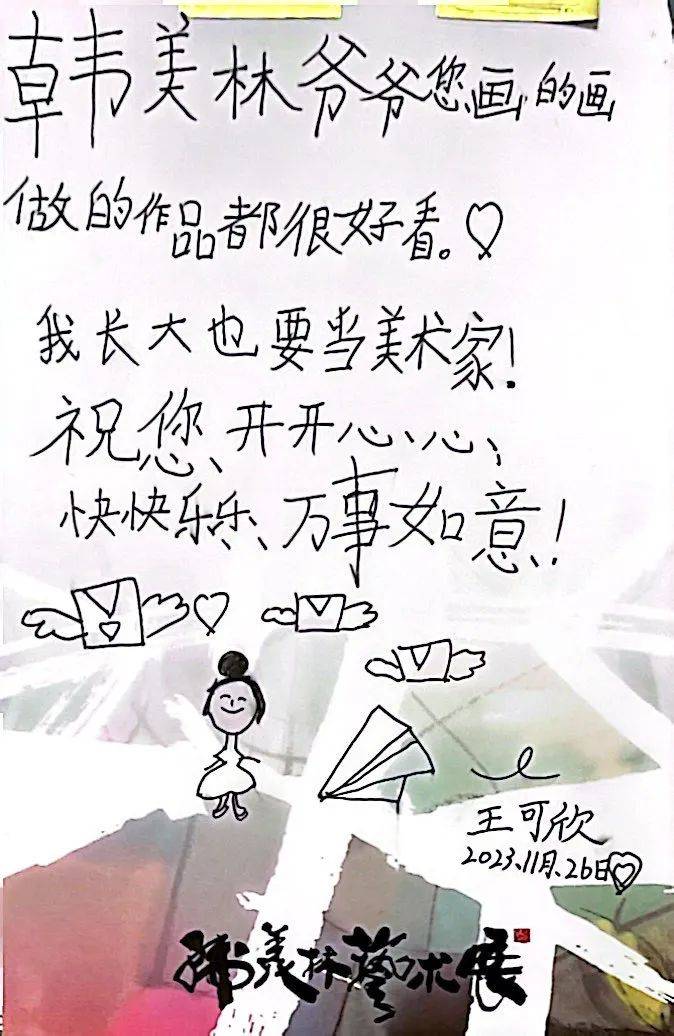 韩美林爷爷您画的画
做的作品都很好看。♡
我长大也要当美术家!
祝您、开开心、心、
快快乐乐、万事如意!
王可欣
2023.11月.26日♡
韩美林藝术展